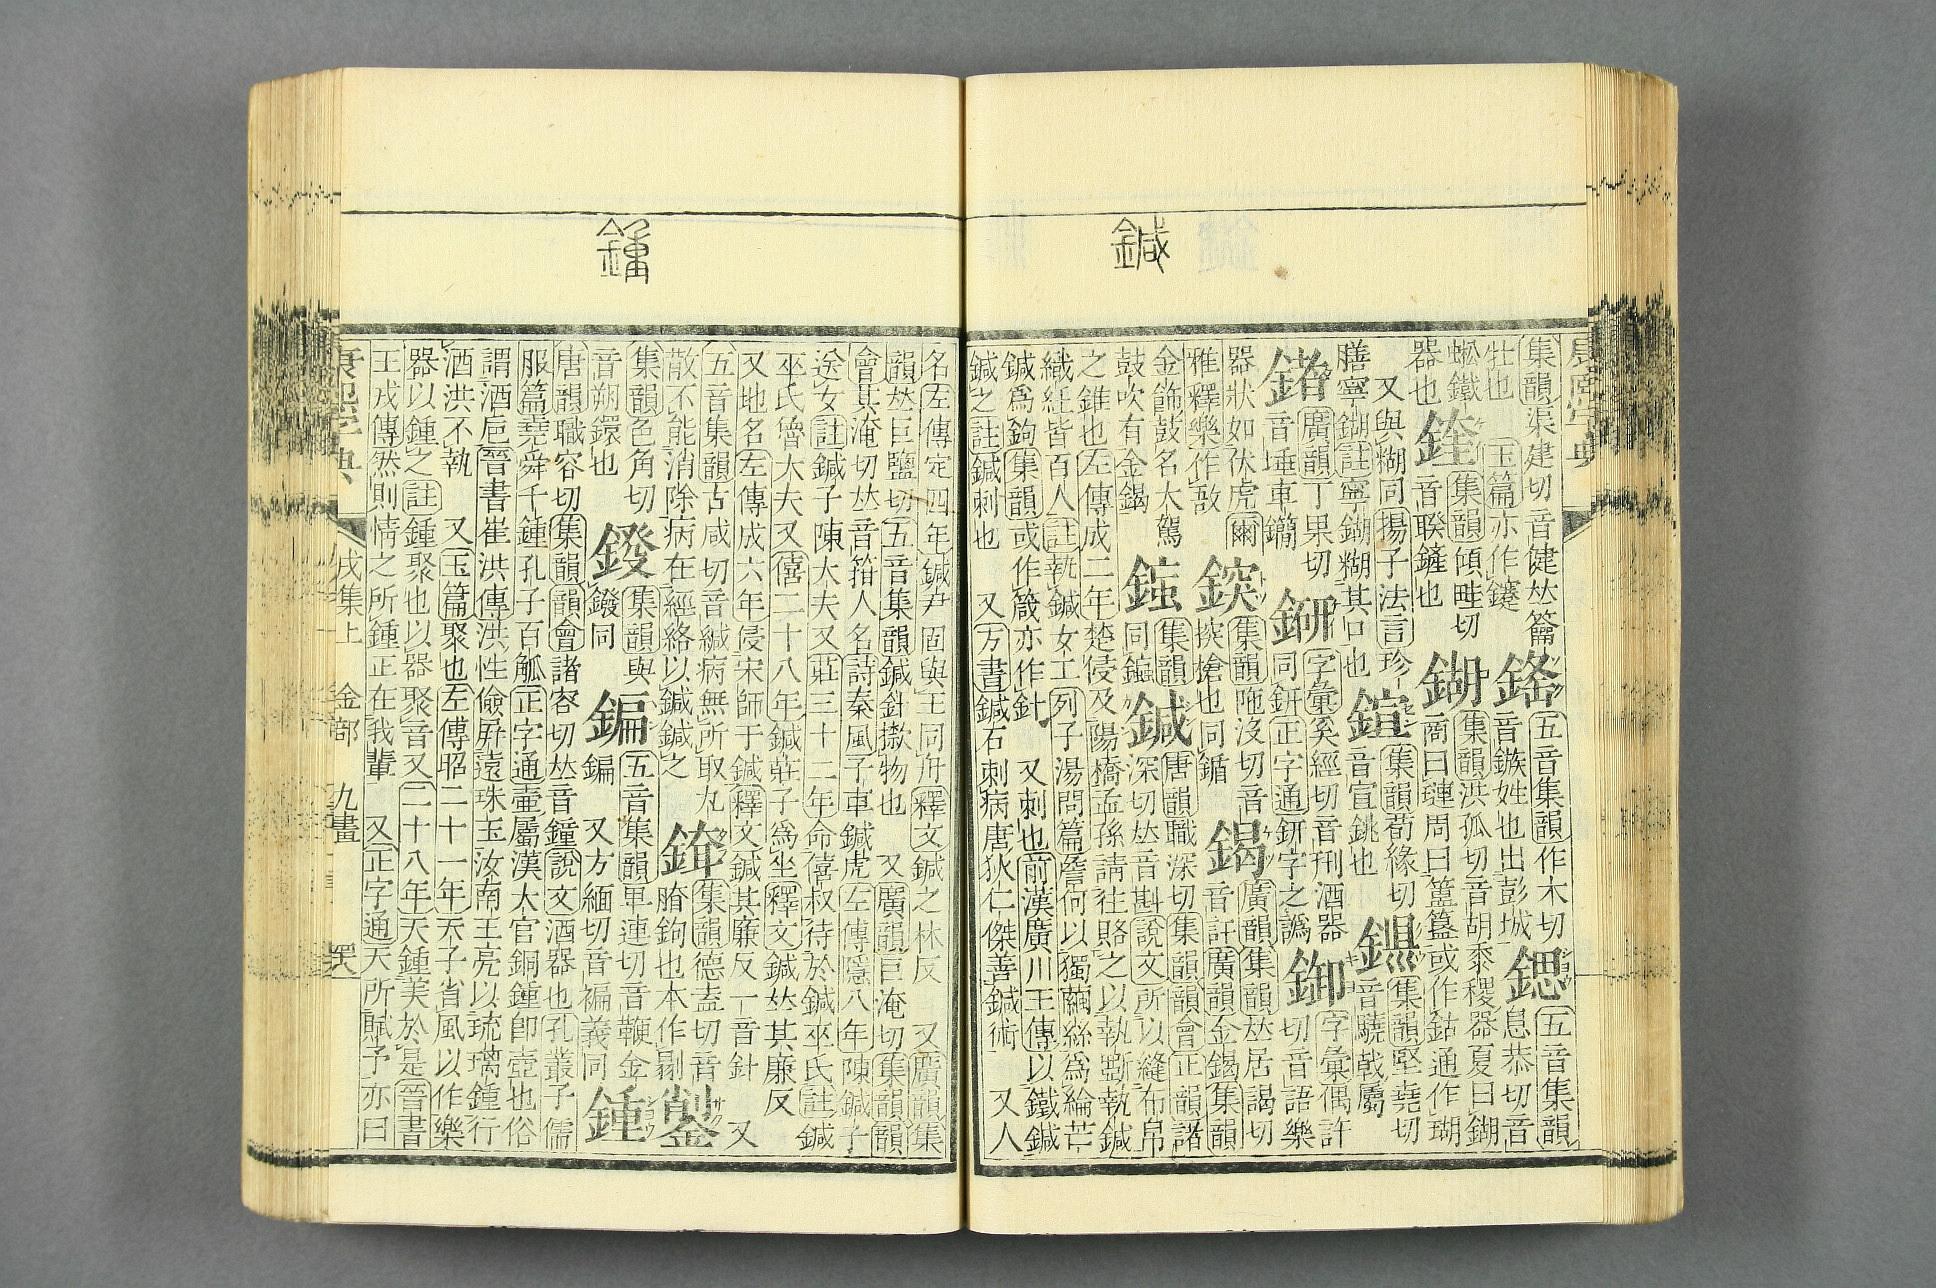 鍼
集韻渠建切音健𠀤籥
牡也 玉篇亦作鑳
五音集韻作木切
音鏃姓也出彭城
鍶
五音集韻
息恭切音
蜙鐵
器也
鍷
集韻傾畦切
音睽鏟也
鍸
集韻洪孤切音胡黍稷器夏曰鍸
商曰璉周曰簠簋或作鈷通作瑚
又與糊同揚子法言珍
膳寧鍸註寧鍸糊其口也
鍹
集韻荀緣切
音宣銚也
集韻堅堯切
音驍戟屬
鍺
廣韻丁果切
音埵車鐧
字彙奚經切音刑酒器
同鈃正字通鈃字之譌
字彙偶許
切音語樂
器狀如伏虎爾
雅釋樂作敔
鍎
集韻陁沒切音
揬搶也同鏑
鍻
廣韻集韻𠀤居謁切
音訐廣韻金鍻集韻
金飾鼓名大駕
鼓吹有金鍻
集韻
同
鍼
唐韻職深切集韻韻會正韻諸
深切𠀤音斟說文所以縫布帛
之錐也左傳成二年楚侵及陽橋孟孫請往賂之以執斲執鍼
織紝皆百人註執鍼女工列子湯問篇詹何以獨繭絲爲綸芒
鍼爲鉤集韻或作箴亦作針 又刺也前漢廣川王傳以鐵鍼
鍼之註鍼刺也 又方書鍼石刺病唐狄仁傑善鍼術 又人
鍾
名左傳定四年鍼尹固與王同舟釋文鍼之林反 又廣韻集
韻𠀤巨鹽切五音集韻鍼針擻物也 又廣韻巨淹切集韻韻
會其淹切𠀤音箝人名詩秦風子車鍼虎左傳隱八年陳鍼子
送女註鍼子陳大夫又莊三十二年命僖叔待於鍼巫氏註鍼
巫氏魯大夫又僖二十八年鍼莊子爲坐釋文鍼𠀤其廉反
又地名左傳成六年侵宋師于鍼釋文鍼其廉反一音針 又
五音集韻古咸切音緘病無所取丸
散不能消除病在經絡以鍼鍼之
集韻德盍切音
䐛鉤也本作
集韻色角切
音朔鐶也
鍐
集韻與
鑁同
鍽
五音集韻卑連切音鞭金
鍽 又方緬切音褊義同
鍾
唐韻職容切集韻韻會諸容切𠀤音鐘說文酒器也孔叢子儒
服篇堯舜千鍾孔子百觚正字通壷屬漢大官銅鍾卽壷也俗
謂酒巵晉書崔洪傳洪性儉屏遠珠玉汝南王亮以琉璃鍾行
酒洪不執 又玉篇聚也左傳昭二十一年天子省風以作樂
器以鍾之註鍾聚也以器聚音又二十八年天鍾美於是晉書
王戎傳然則情之所鍾正在我輩 又正字通天所賦予亦曰
康熙字典 戌集上 金部 九畫